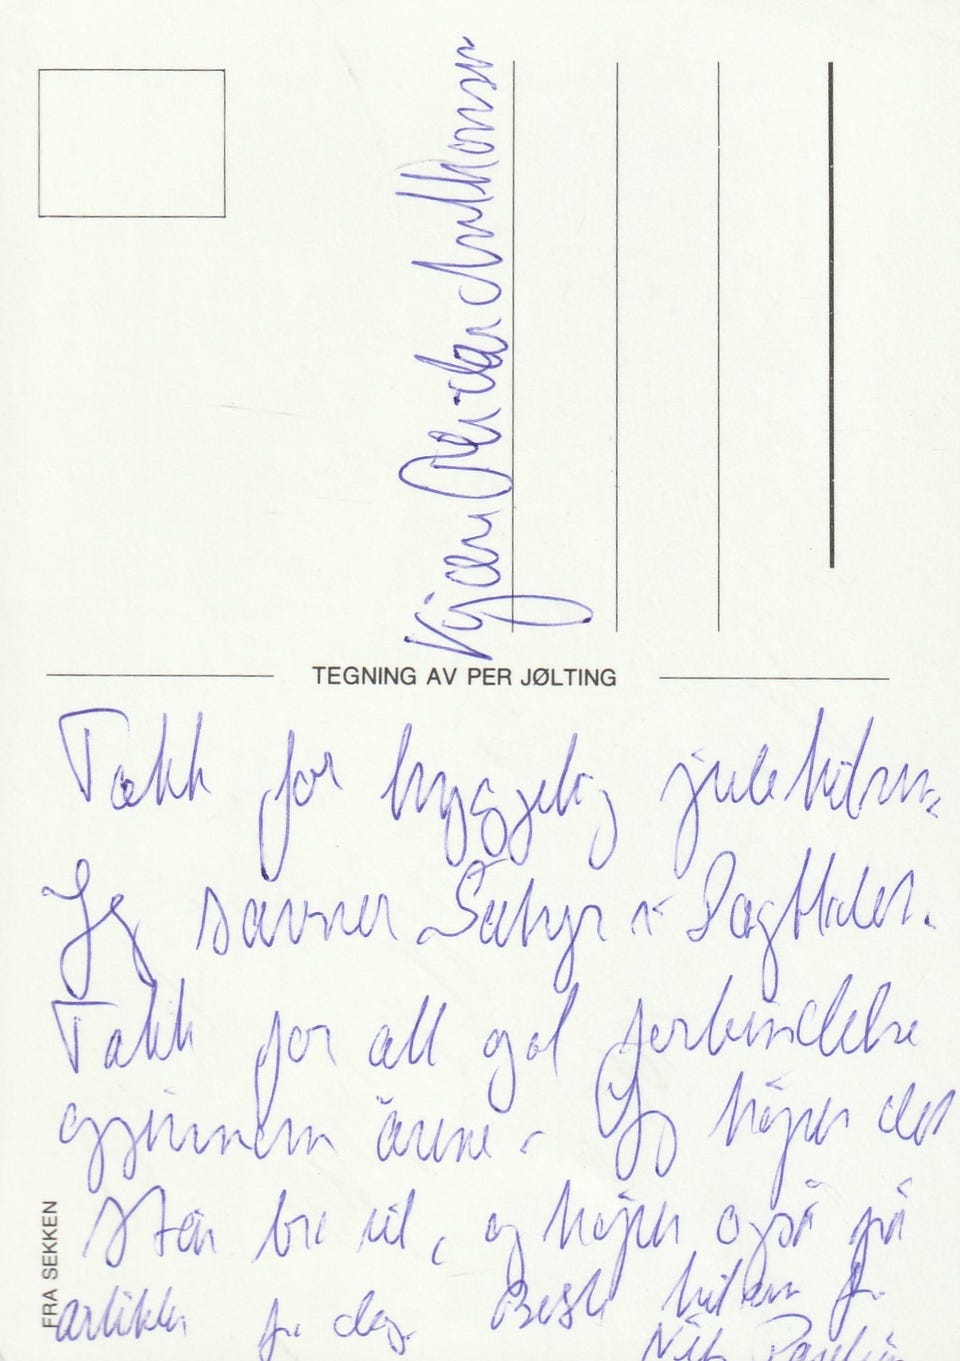 Kjære
TEGNING AV PER JØLTING
Takk for hyggelig julehilsen.
Jeg savner Satyr i Dagbladet.
Takk for all god forbindelse
gjennom årene. Jeg håper det
står bra til, og håper også på
artikler fra deg. Beste hilsen fra
Nils
FRA SEKKEN